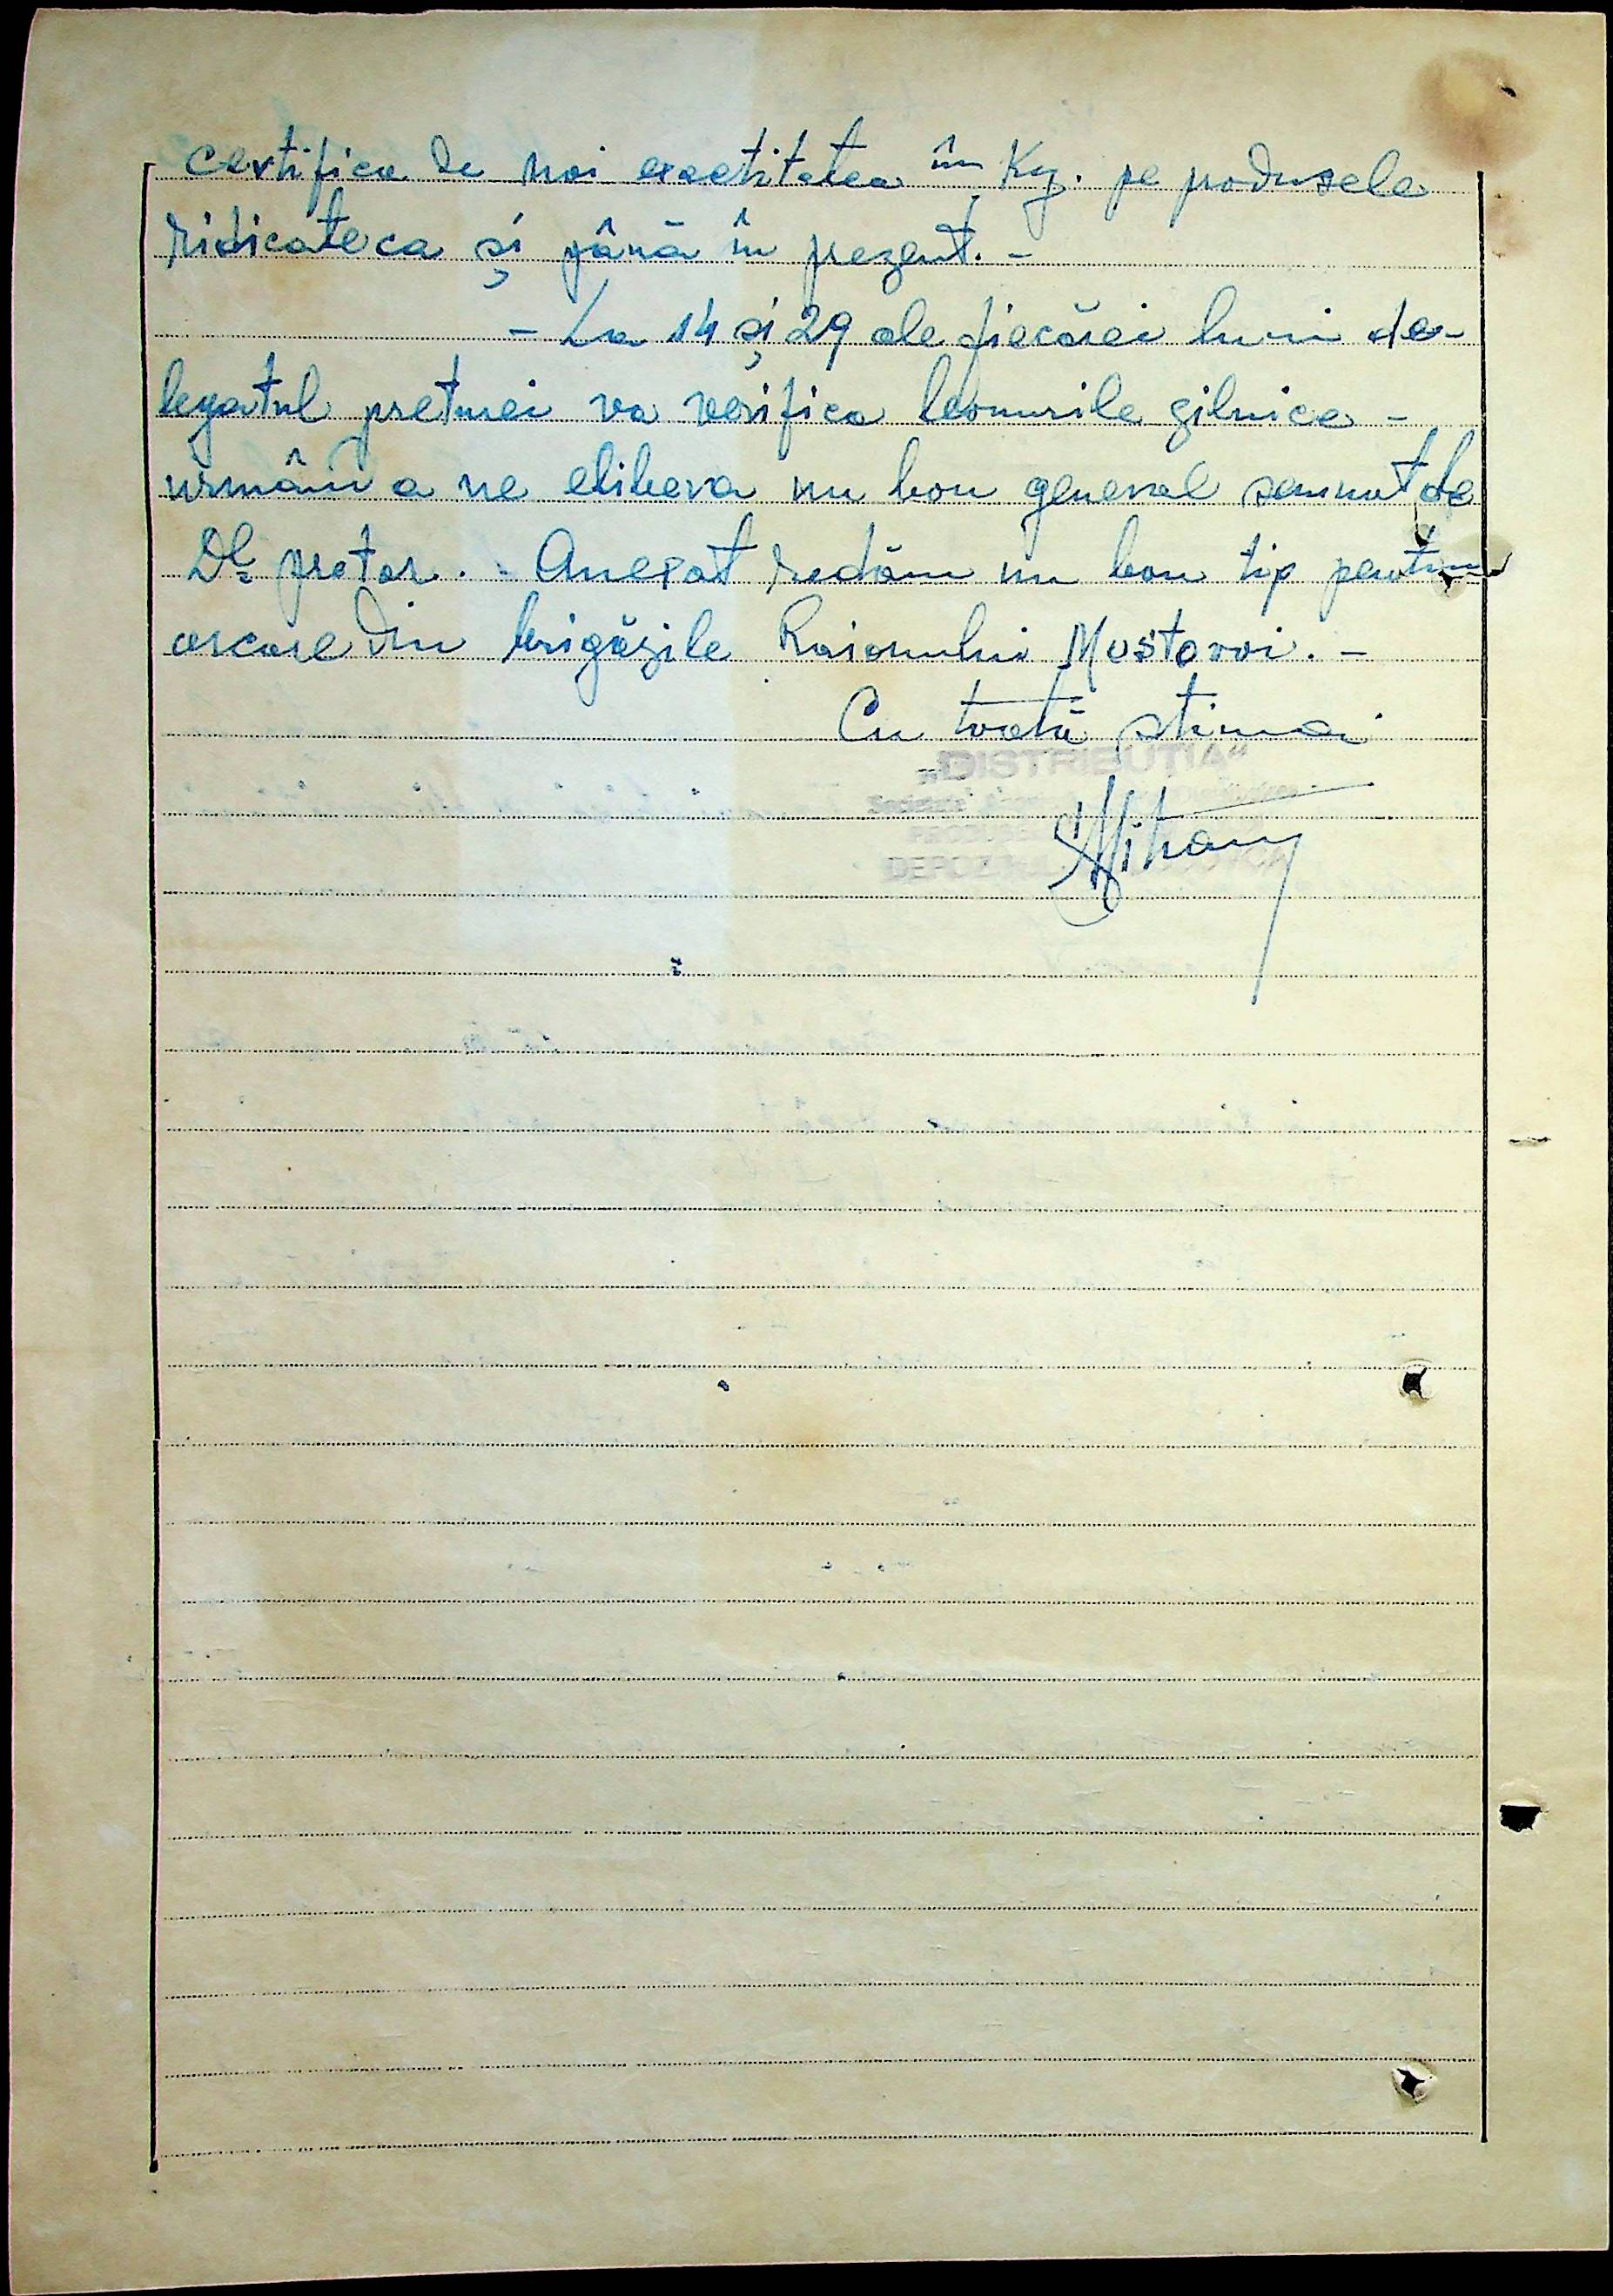 certifica de noi exactitatea în Kg. pe produsele
ridicate ca și până în prezent. -
- La 14 și 29 ale fiecărei luni de-
legatul preturei va verifica bonurile zilnice -
urmând a ne elibera un bon general semnat de
Dl. pretor. - Anexat redăm un bon tip pentru
oricare din brigăzile Raionului Mostovoi. -
Cu toată stima
„DISTRIBUTIA"
Societate
DEPOZITUL